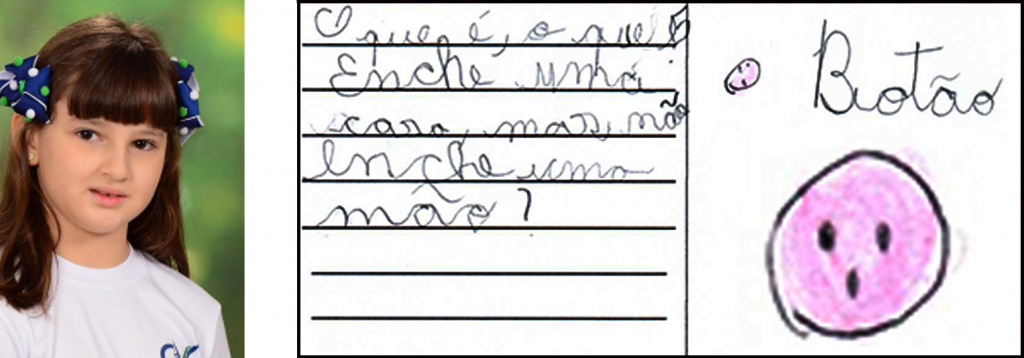 O que é, o que é
Enche uma
casa, mas não
enche uma
mão?
Botão